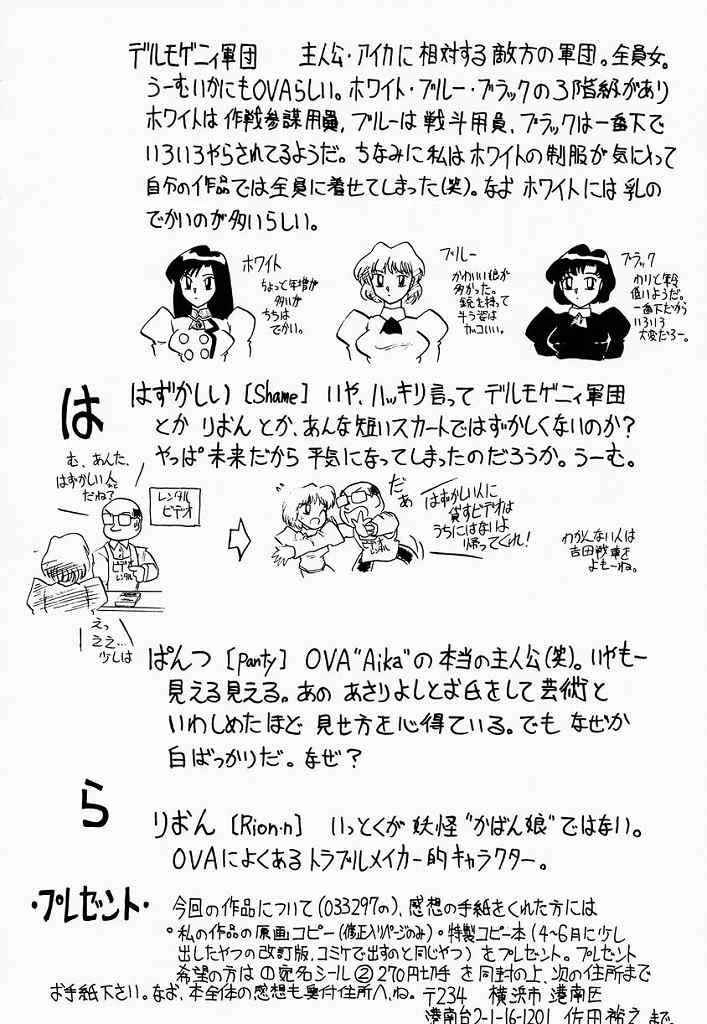 デルモゲニィ軍団　主人公・アイカに相対する敵方の軍団。全員女。
うーむいかにもOVAらしい。ホワイト・ブルー・ブラックの3階級があり
ホワイトは作戦参謀用員，ブルーは戦斗用員，ブラックは一番下で
いろいろやらされてるようだ。ちなみに私はホワイトの制服が気にいって
自分の作品では全員に着せてしまった(笑)。なお ホワイトには乳の
でかいのが多いらしい。
ホワイト
ちょっと年増が
多いが
ちちは
でかい。
ブルー
かわいい娘が
多かった。
銃を持って
斗う姿は
カッコいい。
ブラック
わりと年令
低いようだ。
一番下だから
いろいろ
大変だろー。
は
はずかしい [Shame] いや、ハッキリ言って デルモゲニィ軍団
とか りおん とか、あんな短いスカートではずかしくないのか?
やっぱ未来だから 平気になってしまったのだろうか。うーむ。
む、あんた、
はずかしい人
だね?
レンタル
ビデオ
えっ
ええ…
少しは
だぁ
はずかしい人に
貸すビデオは
うちにはないよ
帰ってくれ!
わかんない人は
吉田戦車を
よもーね。
ぱんつ [Panty] OVA"Aika"の本当の主人公(笑)。いやもー
見える見える。あの あさりよしとお氏をして芸術と
いわしめたほど 見せ方を心得ている。でも なぜか
白ばっかりだ。なぜ?
ら
りおん [Rion・n] いっとくが 妖怪"かばん娘"ではない。
OVAによくあるトラブルメイカー的キャラクター。
・プレゼント・
今回の作品について(033297の)、感想の手紙をくれた方には
°私の作品の原画コピー(修正入りページのみ)・特製コピー本(4〜6月に少し
出したやつの改訂版、コミケで出すのと同じやつ)をプレゼント。プレゼント
希望の方は ①宛名シール ②270円切手 を同封の上、次の住所まで
お手紙下さい。なお、本全体の感想も奥付住所へ、ね。〒234 横浜市港南区
港南台2-1-16-1201 佐田裕之まで